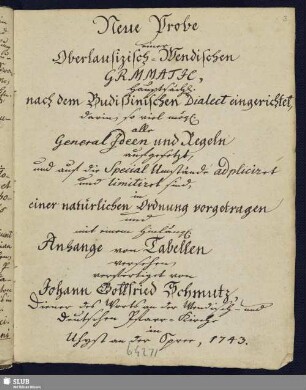 Neue Probe
einer
Oberlausizisch-Wendischen
GRMMATIC,
hauptsächl.
nach dem Budißinischen Dialect eingerichtet,
darin, so viel mögl.
alle
General Ideen und Regeln
aufgesetzt,
und auf die Special Umstände adpliciret
und limitiret sind,
in
einer natürlichen Ordnung vorgetragen
und
mit einem
Anhange von Tabellen
versehen,
verfertiget von
Johann Gottfried Schmutz
Diener des Worts an der Wendisch- und
Deutschen Pfarr-Kirch
in
Uhyst an der Spree, 1743.
SLUB
Wir führen Wissen.